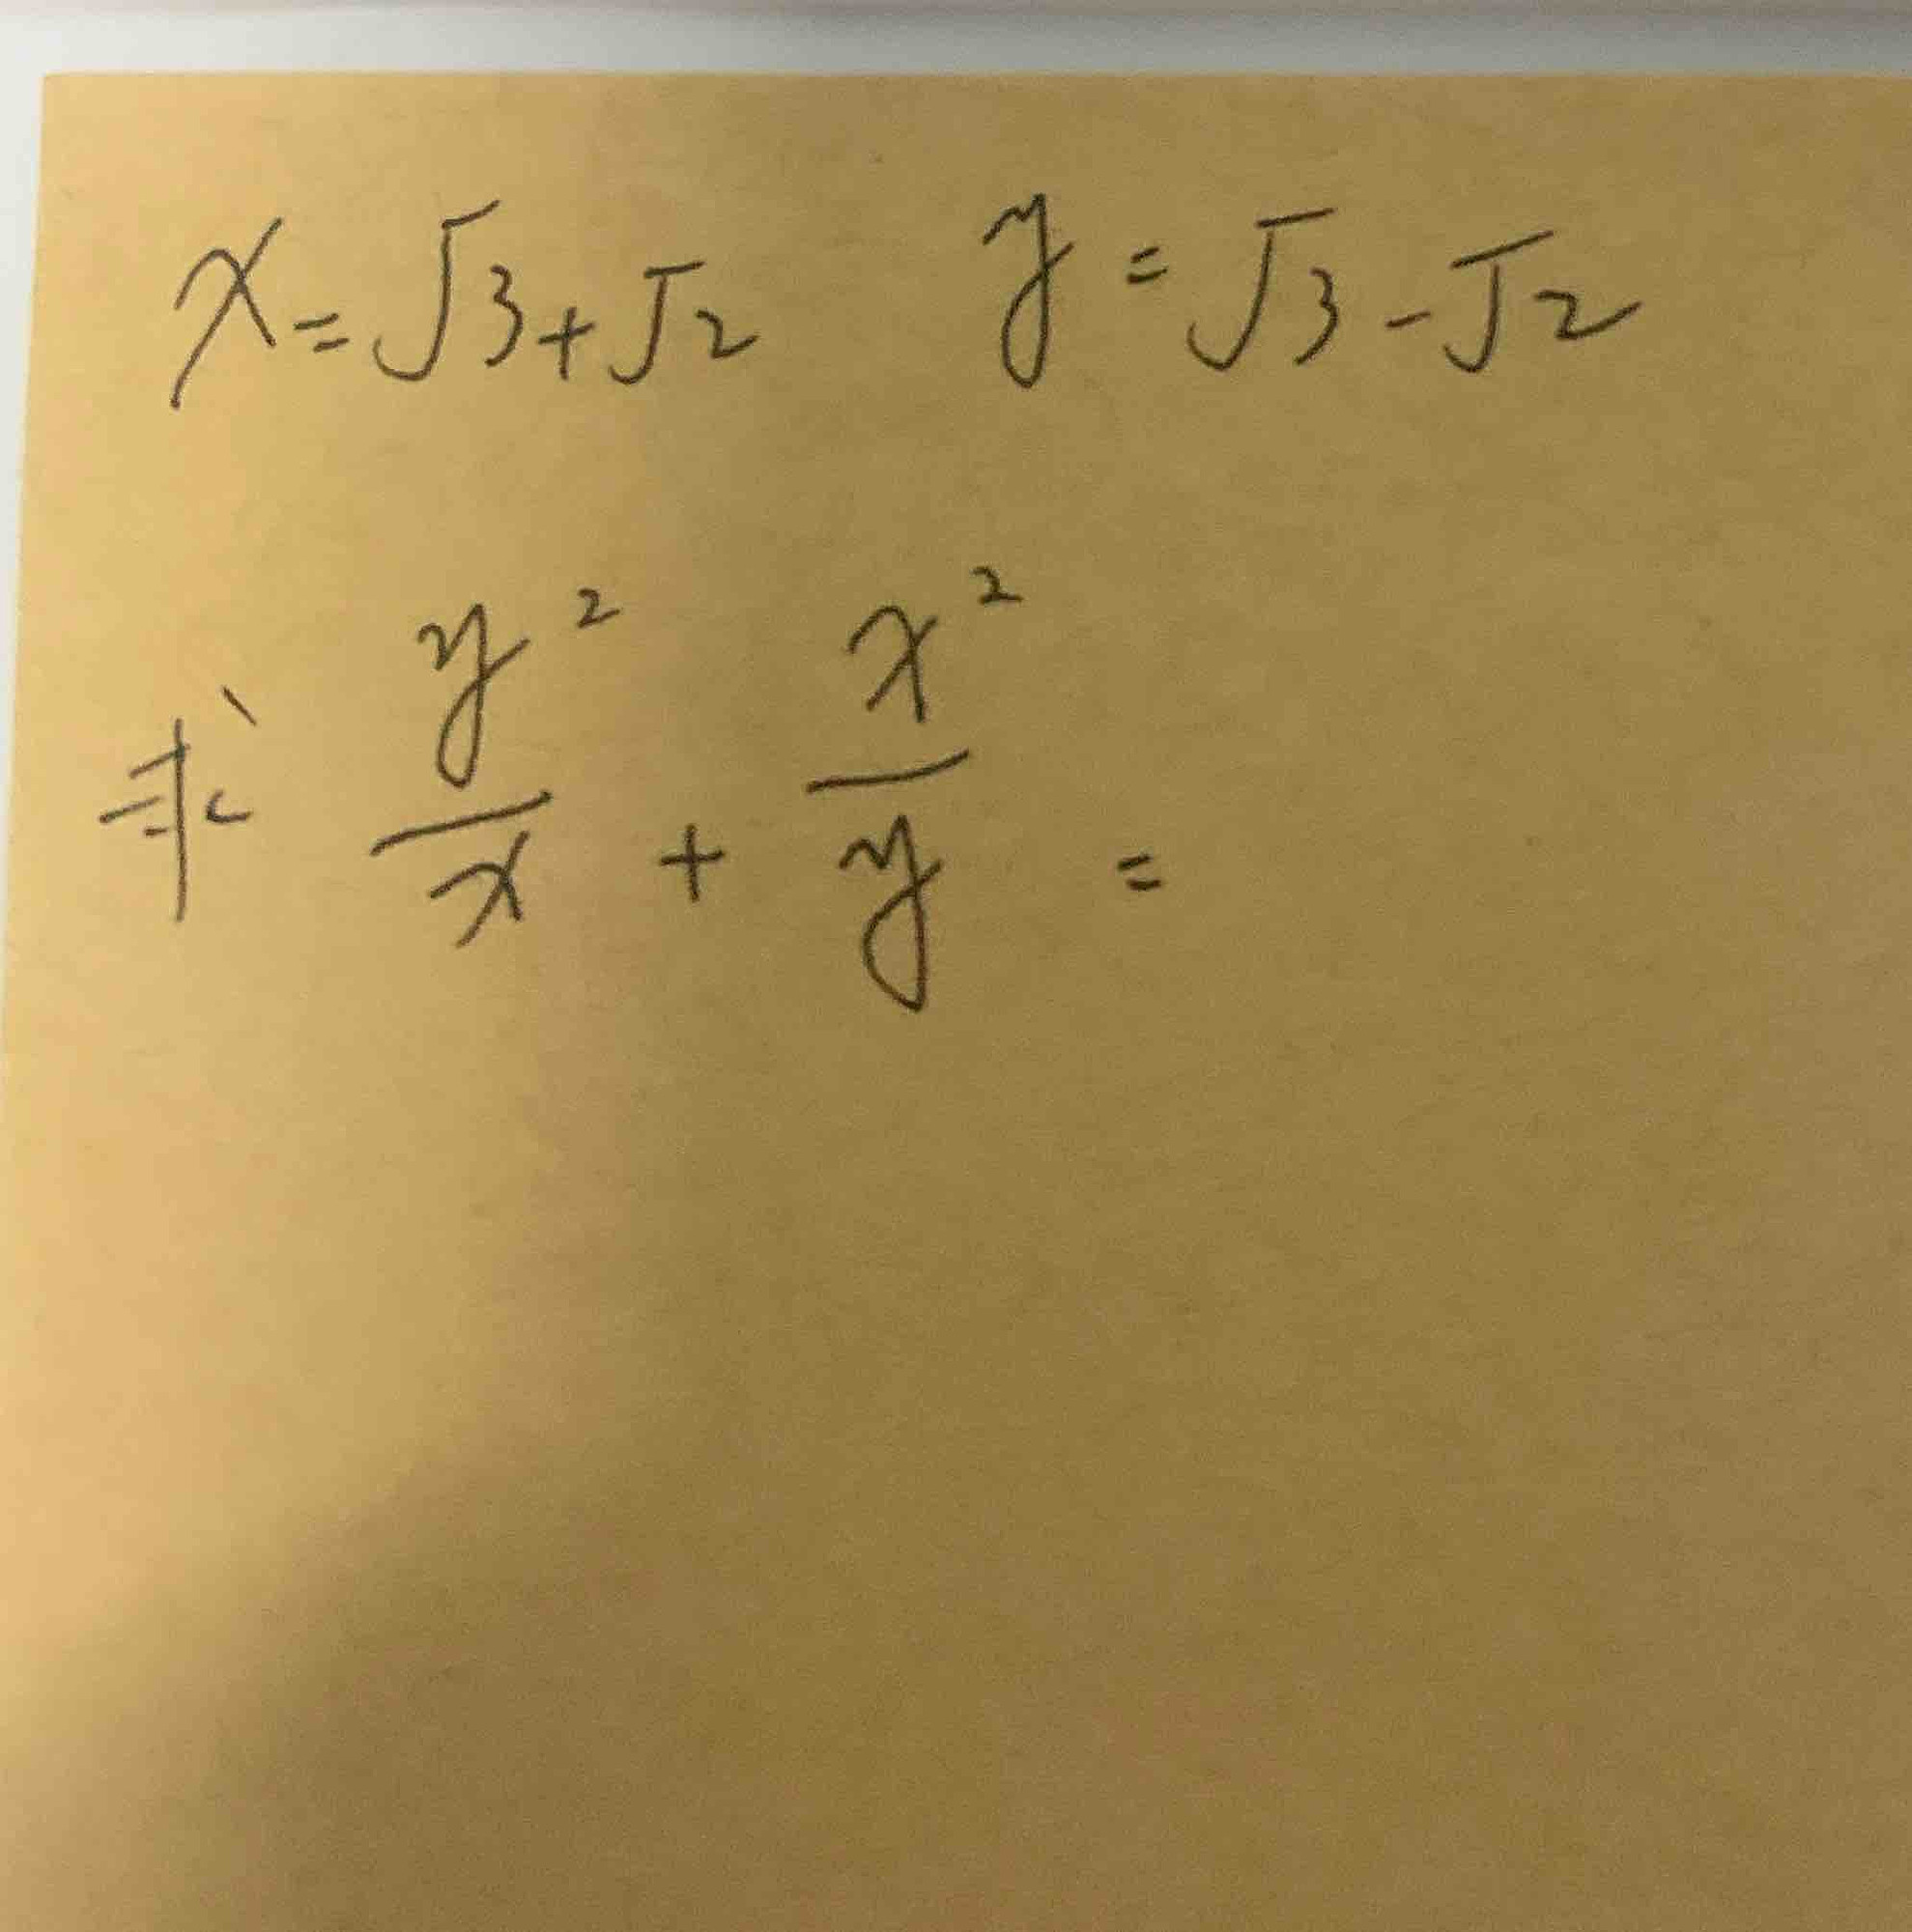 x=√3+√2 y=√3-√2
求 y²/x + x²/y =